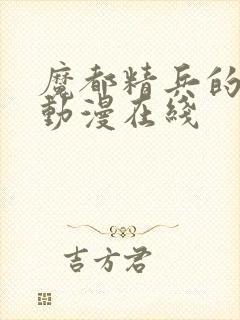 魔都精兵的
動漫在綫
吉方君